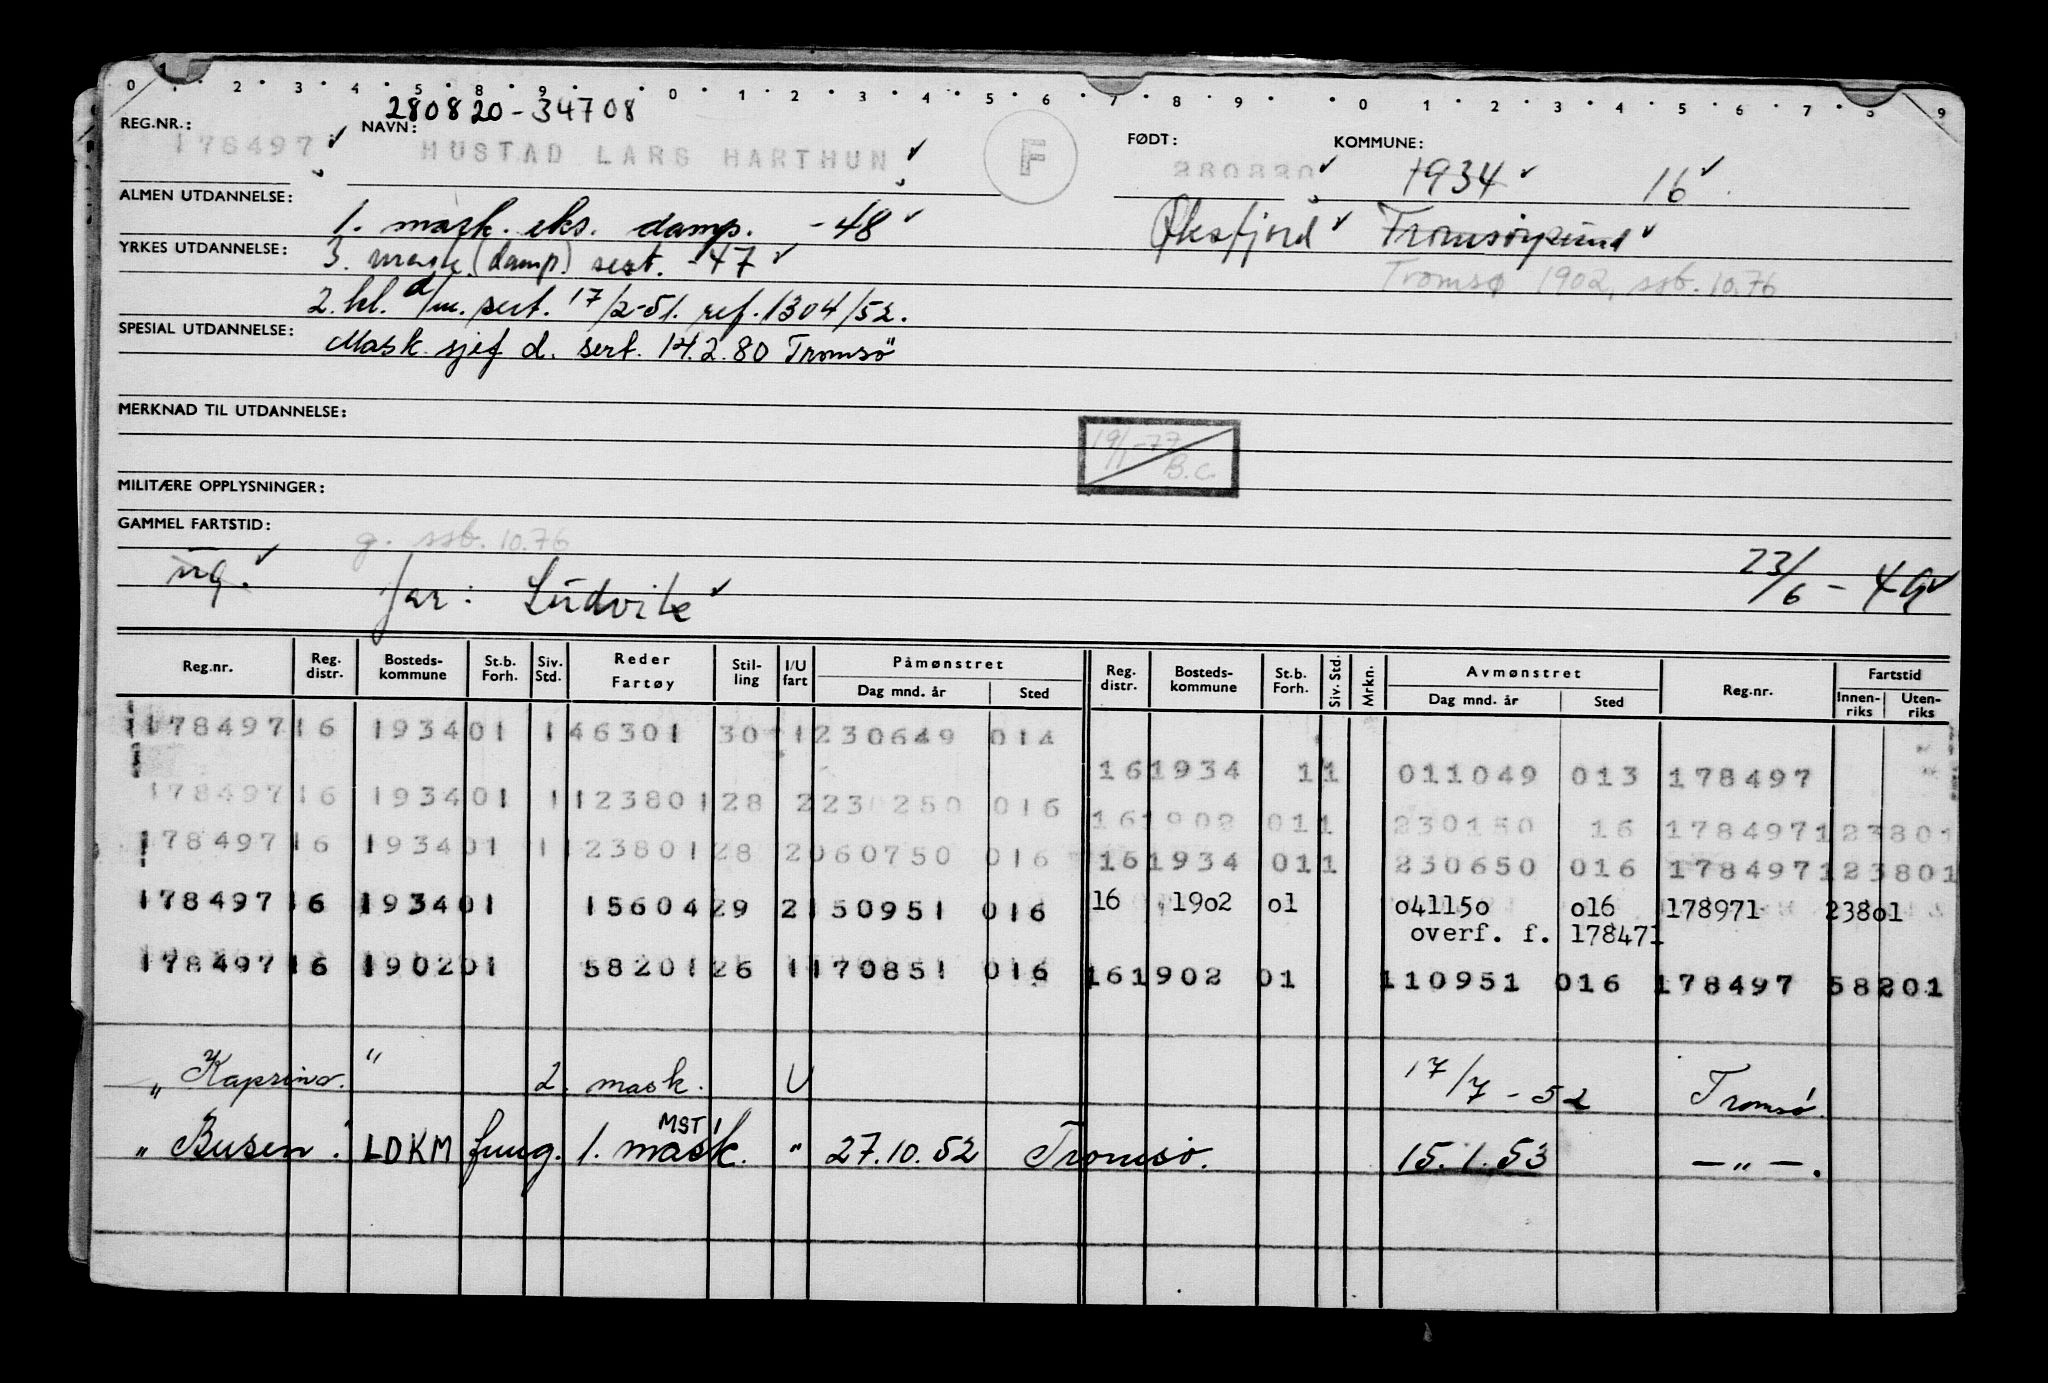 0 1 2 3 4 5 8 9 0 1 2 3 4 5 6 7 8 9 0 1 2 3 4 5 6 7 8 9
280820-34708
REG.NR.: NAVN: FØDT: KOMMUNE:
178497 HUSTAD LARS HARTHUN F 280820 1934 16
ALMEN UTDANNELSE: 1. mask. eks. damp. -48 Øksfjord Tromsøysund
YRKES UTDANNELSE: 3. mask. (damp.) sert. -47
Tromsø 1902, ssb. 10.76
2. kl. d/m. sert. 17/2-51. ref. 1304/52.
SPESIAL UTDANNELSE: Mask. sjef d. sert. 14.2.80 Tromsø
MERKNAD TIL UTDANNELSE:
19/1-77 B.C.
MILITÆRE OPPLYSNINGER:
GAMMEL FARTSTID:
g. ssb. 10.76
ug. far: Ludvik 23/6 - 49
Reg.nr. Reg. distr. Bosteds-kommune St.b. Forh. Siv. Std. Reder Fartøy Stil-ling I/U fart Påmønstret Dag mnd. år Sted Reg. distr. Bosteds-kommune St.b. Forh. Siv. Std. Mrkn. Avmønstret Dag mnd. år Sted Reg.nr. Fartstid Innen-riks Uten-riks
178497 16 1934 01 1 46301 30 1 230649 014
16 1934 1 1 011049 013 178497
178497 16 1934 01 1 12380 1 28 2 230250 016
16 1902 01 1 230150 16 178497 123801
178497 16 1934 01 1 12380 1 28 2 060750 016
16 1934 01 1 230650 016 178497 123801
178497 16 1934 01 15604 29 2 150951 016
16 19o2 o1 o4115o o16 178971 238o1
overf. f. 178471
178497 16 1902 01 58201 26 1 170851 016
16 1902 01 110951 016 178497 58201
" Kaprino. " 2. mask. U 17/7 - 52 Tromsø.
MST
" Busen. LDKM fung. 1. mask. " 27.10.52 Tromsø. 15.1.53 - " -.